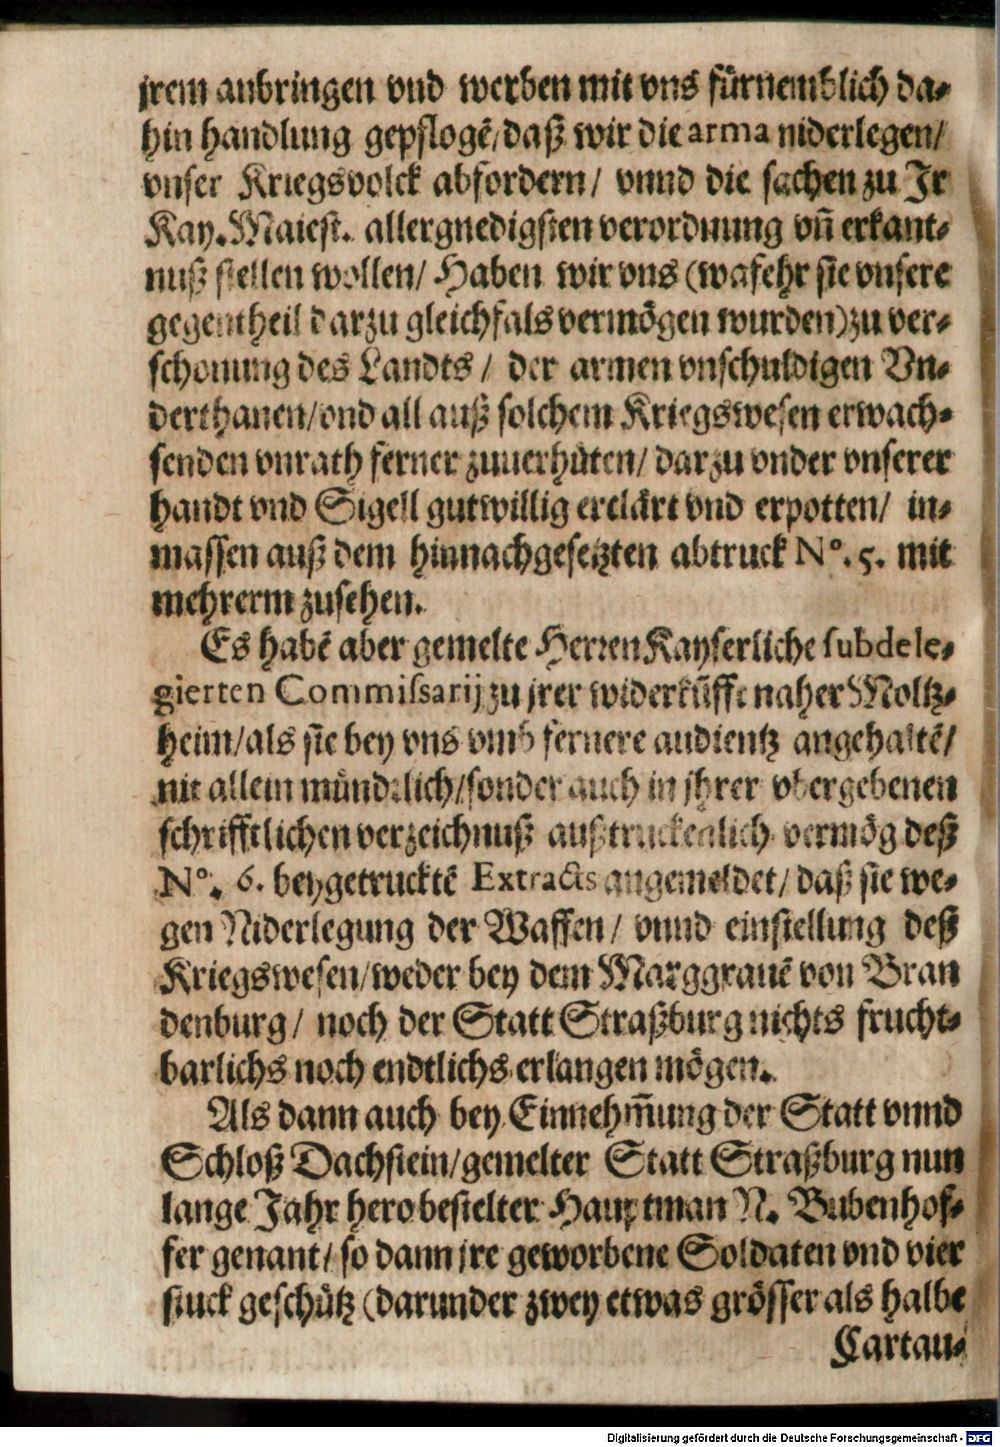 jrem anbringen vnd werben mit vns fürnemblich da-
hin handlung gepflogẽ/daß wir die arma niderlegen/
vnser Kriegsvolck abfordern/ vnnd die sachen zu Jr
Kay. Maiest. allergnedigsten verordnung vñ erkant-
nuß stellen wollen/ Haben wir vns (wafehr sie vnsere
gegentheil darzu gleichfals vermögen wurden) zu ver-
schonung des Landts / der armen vnschuldigen Vn-
derthanen/vnd all auß solchem Kriegswesen erwach-
senden vnrath ferner zuuerhüten/ darzu vnder vnserer
handt vnd Sigell gutwillig erclärt vnd erpotten/ in-
massen auß dem hinnachgesetzten abtruck N°. 5. mit
mehrerm zusehen.
Es habẽ aber gemelte Herren Kayserliche subdele-
gierten Commissarij zu jrer widerkũfft naher Moltz-
heim/als sie bey vns vmb fernere audientz angehaltẽ/
nit allein mündtlich/sonder auch in jhrer vbergebenen
schrifftlichen verzeichnuß außtruckenlich vermög deß
N°. 6. beygetrucktẽ Extracts angemeldet/ daß sie we-
gen Niderlegung der Waffen/ vnnd einstellung deß
Kriegswesen/weder bey dem Marggrauẽ von Bran
denburg/ noch der Statt Straßburg nichts frucht-
barlichs noch endtlichs erlangen mögen.
Als dann auch bey Einnehm̃ung der Statt vnnd
Schloß Dachstein/gemelter Statt Straßburg nun
lange Jahr hero bestelter Hauptman N. Bubenhof-
fer genant/ so dann jre geworbene Soldaten vnd vier
stuck geschütz (darunder zwey etwas grösser als halbe
Cartau-
Digitalisierung gefördert durch die Deutsche Forschungsgemeinschaft - DFG